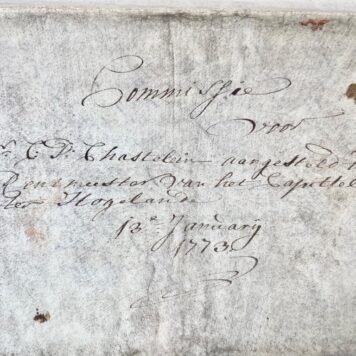 Commissie
voor
Mr. C. F. Chastelein aangesteld
Rentmeester van het Capittel
ter Hogelande
13e January
1773